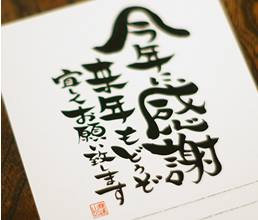 今年に感謝
来年もどうぞ
宜しくお願い致します